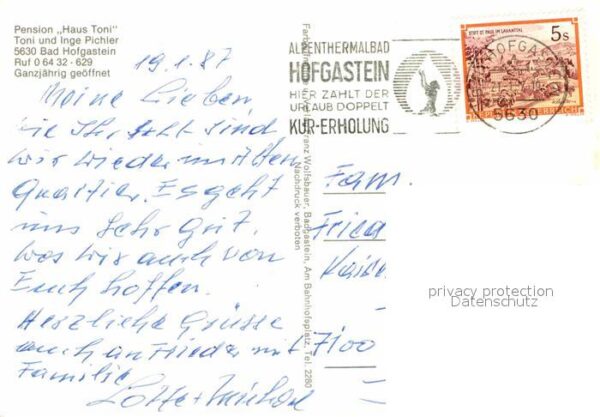 Pension „Haus Toni"
Toni und Inge Pichler
5630 Bad Hofgastein
Ruf 0 64 32 - 629
Ganzjährig geöffnet
19.1.87
Meine Lieben
wie Ihr seht sind
wir wieder im Alten
Quartier. Es geht
uns sehr gut,
was wir auch von
Euch hoffen.
Herzliche Grüsse
auch an Frieder mit
Familie
Lotte +
Nachdruck verboten
Franz Wolfsbauer, Badgastein, Am Bahnhofsplatz, Tel. 2280
ALPENTHERMALBAD
HOFGASTEIN
HIER ZÄHLT DER
URLAUB DOPPELT
KUR-ERHOLUNG
STIFT ST. PAUL IM LAVANTTAL
5s
5630
Fam.
7100
privacy protection
Datenschutz